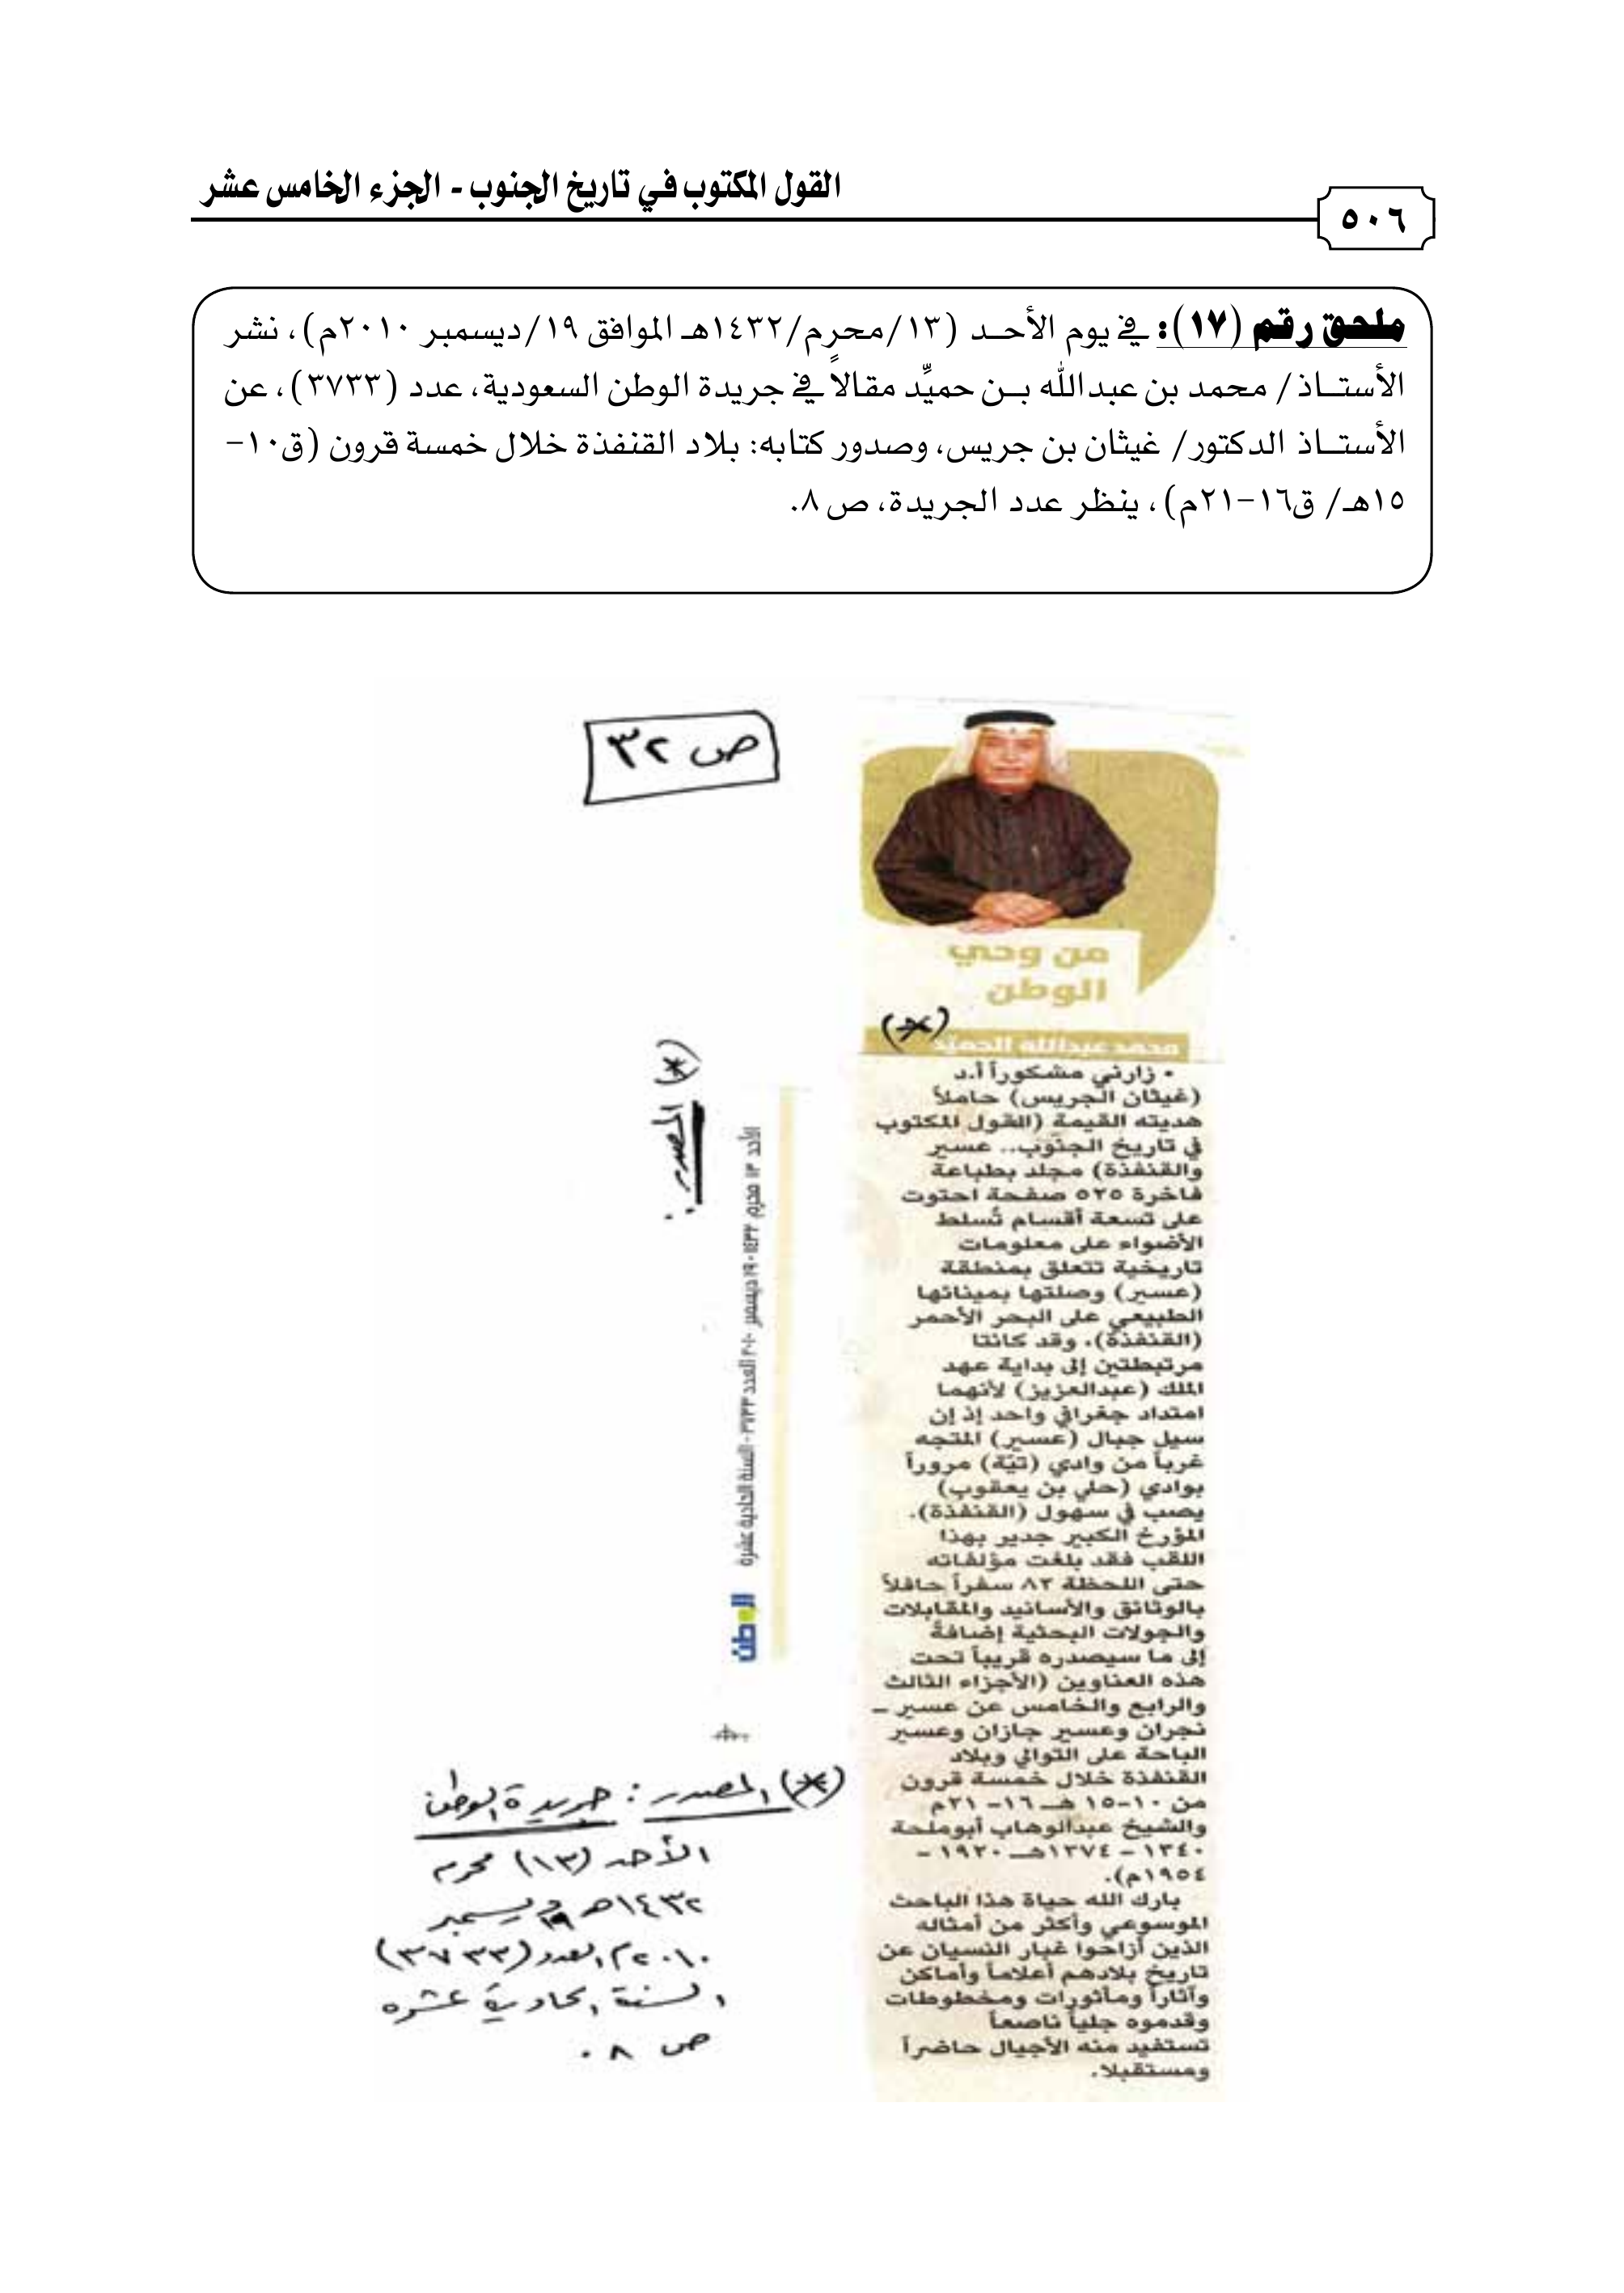 القول المكتوب في تاريخ الجنوب - الجزء الخامس عشر
٥٠٦
ملحق رقم (١٧): في يوم الأحد (١٣/محرم/١٤٣٢هـ الموافق ١٩/ديسمبر ٢٠١٠م)، نشر
الأستاذ/ محمد بن عبدالله بن حميِّد مقالاً في جريدة الوطن السعودية، عدد (٣٧٣٣)، عن
الأستاذ الدكتور/ غيثان بن جريس، وصدور كتابه: بلاد القنفذة خلال خمسة قرون (ق١٠-
١٥هـ/ ق١٦-٢١م)، ينظر عدد الجريدة، ص٨.
ص ٣٢
من وحي
الوطن
(*)
محمد عبدالله الحميّد
• زارني مشكوراً أ.د
(غيثان الجريس) حاملاً
هديته القيمة (القول المكتوب
في تاريخ الجنوب.. عسير
والقنفذة) مجلد بطباعة
فاخرة ٥٢٥ صفحة احتوت
على تسعة أقسام تُسلط
الأضواء على معلومات
تاريخية تتعلق بمنطقة
(عسير) وصلتها بمينائها
الطبيعي على البحر الأحمر
(القنفذة). وقد كانتا
مرتبطتين إلى بداية عهد
الملك (عبدالعزيز) لأنهما
امتداد جغرافي واحد إذ إن
سيل جبال (عسير) المتجه
غرباً من وادي (تيّة) مروراً
بوادي (حلي بن يعقوب)
يصب في سهول (القنفذة).
المؤرخ الكبير جدير بهذا
اللقب فقد بلغت مؤلفاته
حتى اللحظة ٨٣ سفراً حافلاً
بالوثائق والأسانيد والمقابلات
والجولات البحثية إضافة
إلى ما سيصدره قريباً تحت
هذه العناوين (الأجزاء الثالث
والرابع والخامس عن عسير –
نجران وعسير جازان وعسير
الباحة على التوالي وبلاد
القنفذة خلال خمسة قرون
من ١٠-١٥ هـ ١٦- ٢١م
والشيخ عبدالوهاب أبوملحة
١٣٤٠ – ١٣٧٤هـ ١٩٢٠ –
١٩٥٤م).
بارك الله حياة هذا الباحث
الموسوعي وأكثر من أمثاله
الذين أزاحوا غبار النسيان عن
تاريخ بلادهم أعلاماً وأماكن
وآثاراً ومأثورات ومخطوطات
وقدموه جلياً ناصعاً
تستفيد منه الأجيال حاضراً
ومستقبلا.
(*) المصدر:
الأحد ١٣ محرم ١٤٣٢ - ١٩ ديسمبر ٢٠١٠ العدد ٣٧٣٣ - السنة الحادية عشرة
الوطن
(*) المصدر: جريدة الوطن
الأحد (١٣) محرم
١٤٣٢هـ ١٩ ديسمبر
٢٠١٠م العدد (٣٧٣٣)
السنة الحادية عشره
ص ٨.